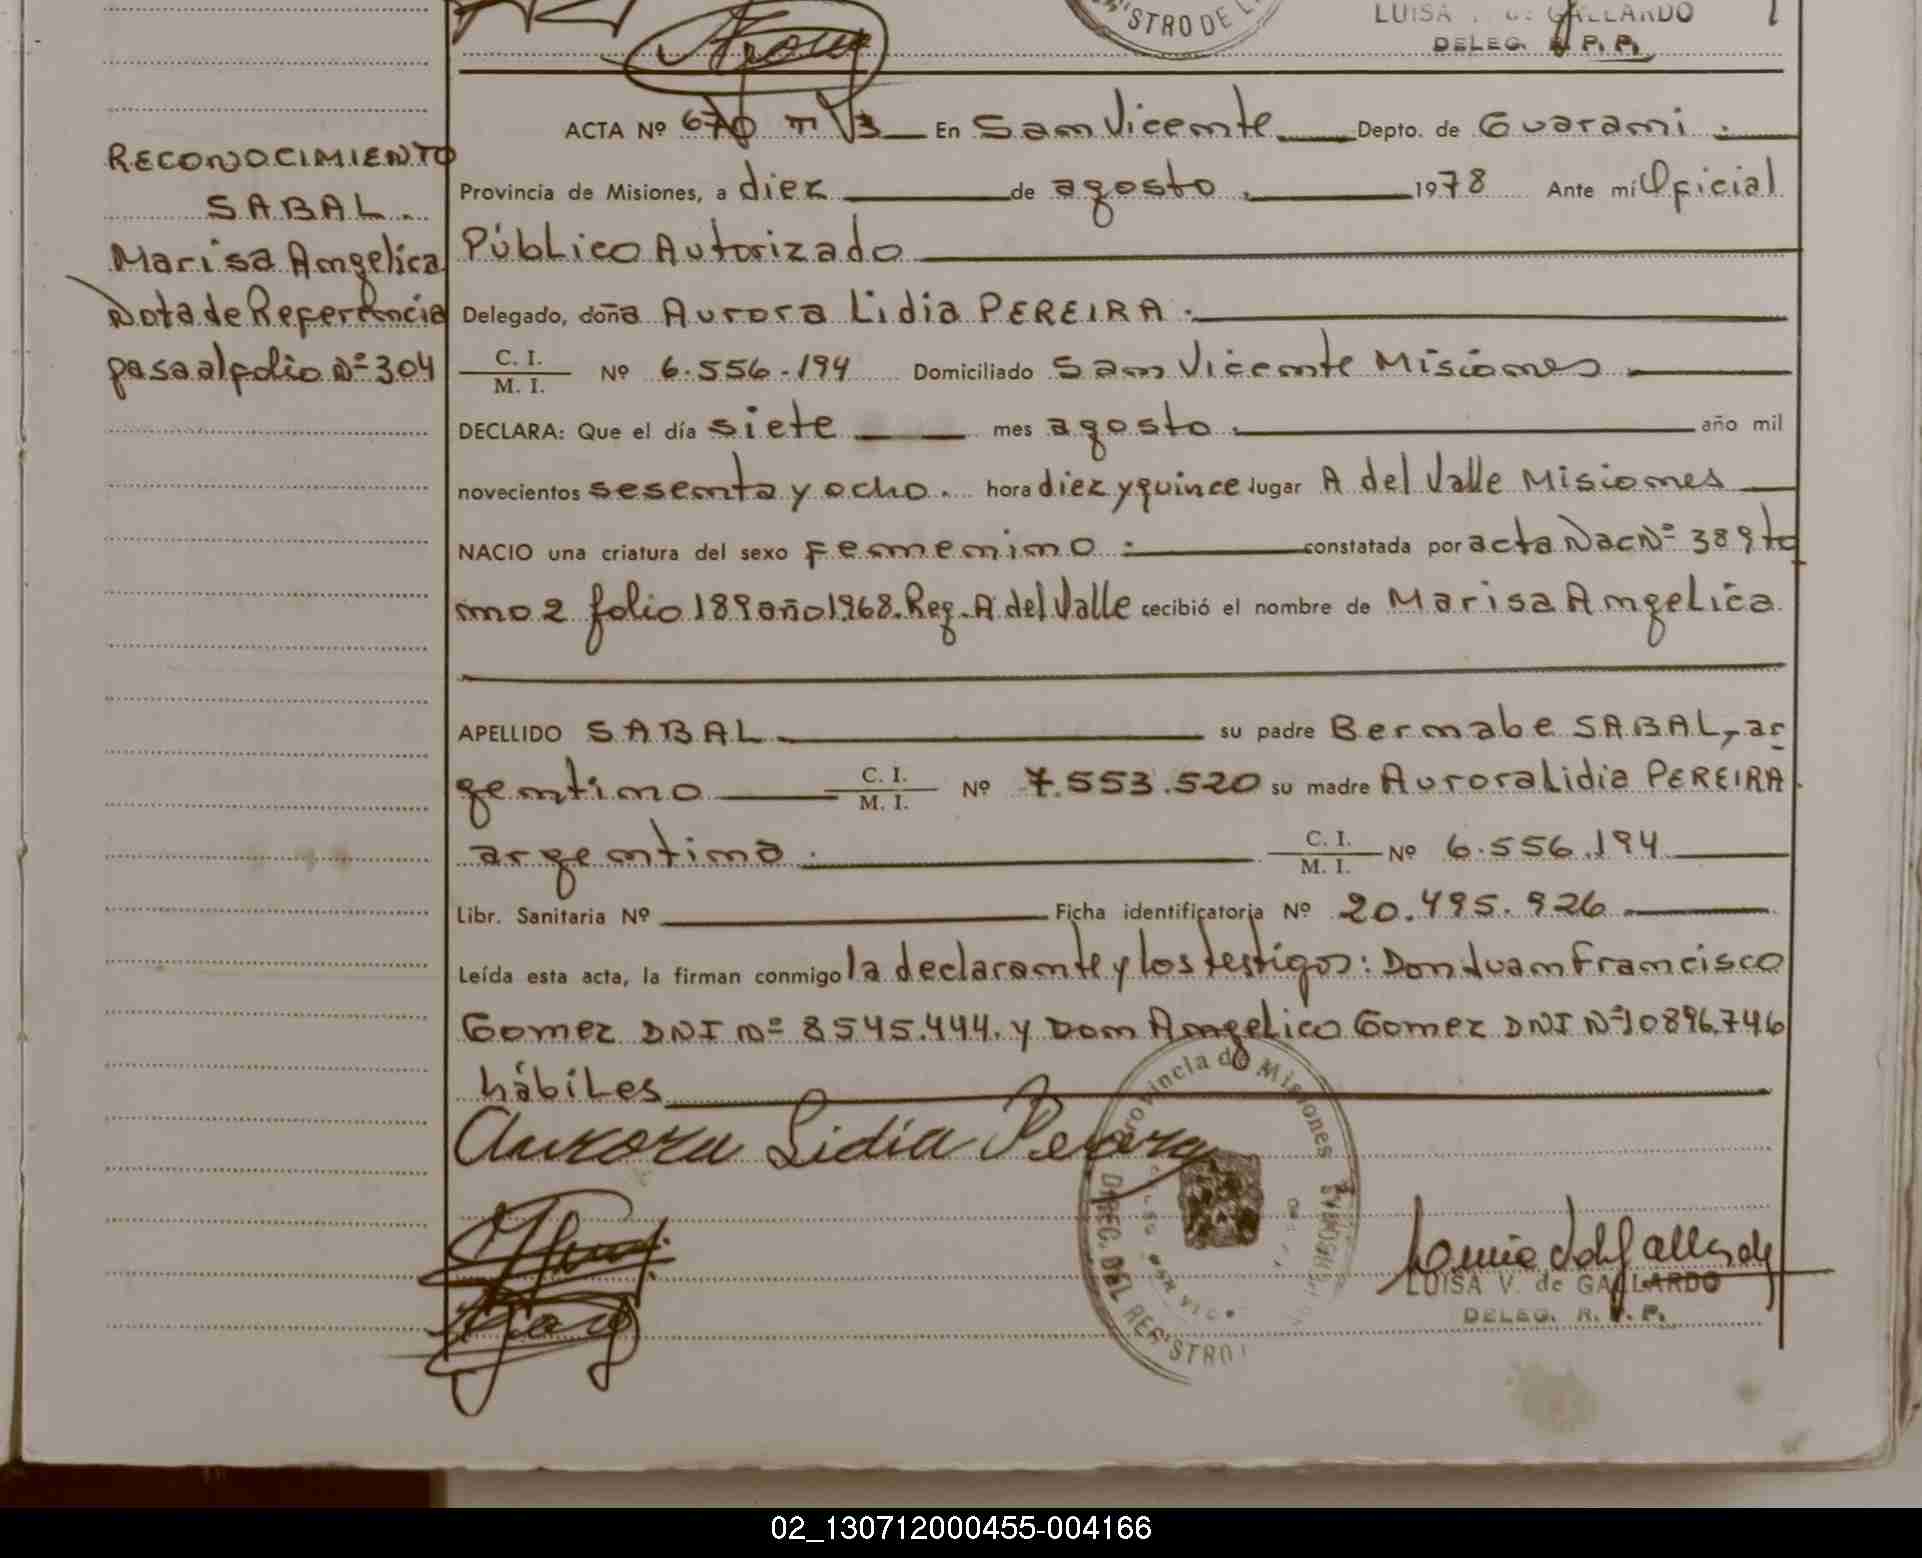 STRO DE L
LUISA V. de GALLARDO
DELEG. R. P. P.
ACTA Nº 670 T V3 En San Vicente Depto. de Guarani.
RECONOCIMIENTO
SABAL.
Marisa Angelica
Nota de Referencia
pasa al folio Nº 304
Provincia de Misiones, a diez de agosto. 1978 Ante mi Oficial
Público Autorizado
Delegado, doña Aurora Lidia PEREIRA.
C. I.
M. I. Nº 6.556.194 Domiciliado San Vicente Misiones
DECLARA: Que el día siete mes agosto. año mil
novecientos sesenta y ocho. hora diez y quince lugar A del Valle Misiones
NACIO una criatura del sexo Femenino. constatada por acta Nac Nº 389 to
mo 2 folio 189 año 1968. Reg. A del Valle recibió el nombre de Marisa Angelica
APELLIDO SABAL su padre Bernabe SABAL, ar
gentino C. I.
M. I. Nº 7.553.520 su madre Aurora Lidia PEREIRA
argentina. C. I.
M. I. Nº 6.556.194
Libr. Sanitaria Nº Ficha identificatoria Nº 20.495.926
Leída esta acta, la firman conmigo la declarante y los testigos: Don Juan Francisco
Gomez DNI Nº 8545.444. y Don Angelico Gomez DNI Nº 10896.746
hábiles
Aurora Lidia Pereira
Provincia de Misiones
DIREC. DEL REGISTRO
LUISA V. de GALLARDO
DELEG. R. P. P.
02_130712000455-004166